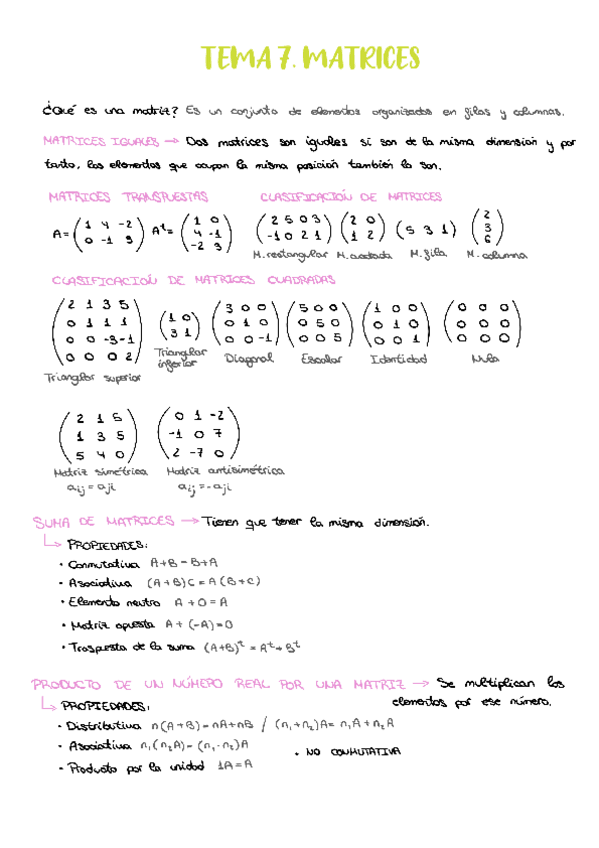 TEMA 7. MATRICES
¿Qué es una matriz? Es un conjunto de elementos organizados en filas y columnas.
MATRICES IGUALES → Dos matrices son iguales si son de la misma dimensión y por
tanto, los elementos que ocupan la misma posición también lo son.
MATRICES TRANSPUESTAS CLASIFICACIÓN DE MATRICES
A = (1 4 -2 / 0 -1 3) Aᵗ = (1 0 / 4 -1 / -2 3) (2 5 0 3 / -1 0 2 1) (2 0 / 1 2) (5 3 1) (2 / 3 / 6)
M. rectangular M. cuadrada M. fila M. columna
CLASIFICACIÓN DE MATRICES CUADRADAS
(2 1 3 5 / 0 1 1 1 / 0 0 -3 -1 / 0 0 0 2) (1 0 / 3 1) (3 0 0 / 0 1 0 / 0 0 -1) (5 0 0 / 0 5 0 / 0 0 5) (1 0 0 / 0 1 0 / 0 0 1) (0 0 0 / 0 0 0 / 0 0 0)
Triangular superior Triangular inferior Diagonal Escalar Identidad Nula
(2 1 5 / 1 3 5 / 5 4 0) (0 1 -2 / -1 0 7 / 2 -7 0)
Matriz simétrica Matriz antisimétrica
aij = aji aij = -aji
SUMA DE MATRICES → Tienen que tener la misma dimensión.
↳ PROPIEDADES:
· Conmutativa A+B = B+A
· Asociativa (A+B)C = A(B+C)
· Elemento neutro A + O = A
· Matriz opuesta A + (-A) = O
· Traspuesta de la suma (A+B)ᵗ = Aᵗ + Bᵗ
PRODUCTO DE UN NÚMERO REAL POR UNA MATRIZ → Se multiplican los
elementos por ese número.
↳ PROPIEDADES:
· Distributiva n(A+B) = nA+nB / (n₁+n₂)A = n₁A + n₂A
· Asociativa n₁(n₂A) = (n₁·n₂)A
· NO CONMUTATIVA
· Producto por la unidad 1A = A